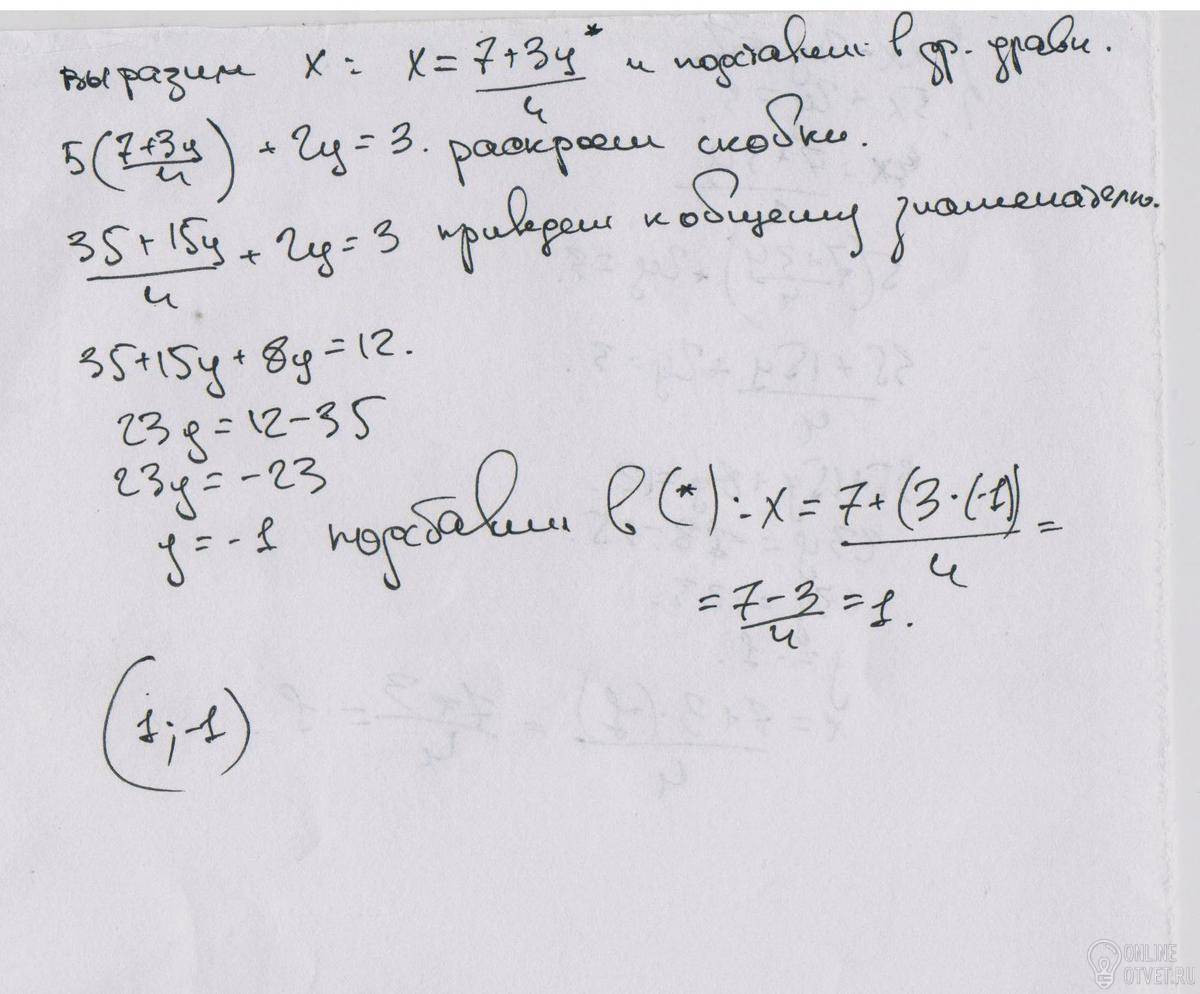 выразим x: x = 7+3y* / 4 и подставим в др. уравн.
5(7+3y / 4) + 2y = 3. раскроем скобки.
35+15y / 4 + 2y = 3 приведем к общему знаменателю.
35+15y+8y=12.
23y=12-35
23y=-23
y=-1 подставим в (*): x = 7+(3·(-1)) / 4 =
= 7-3 / 4 = 1.
(1;-1)
ONLINE
OTVET.RU